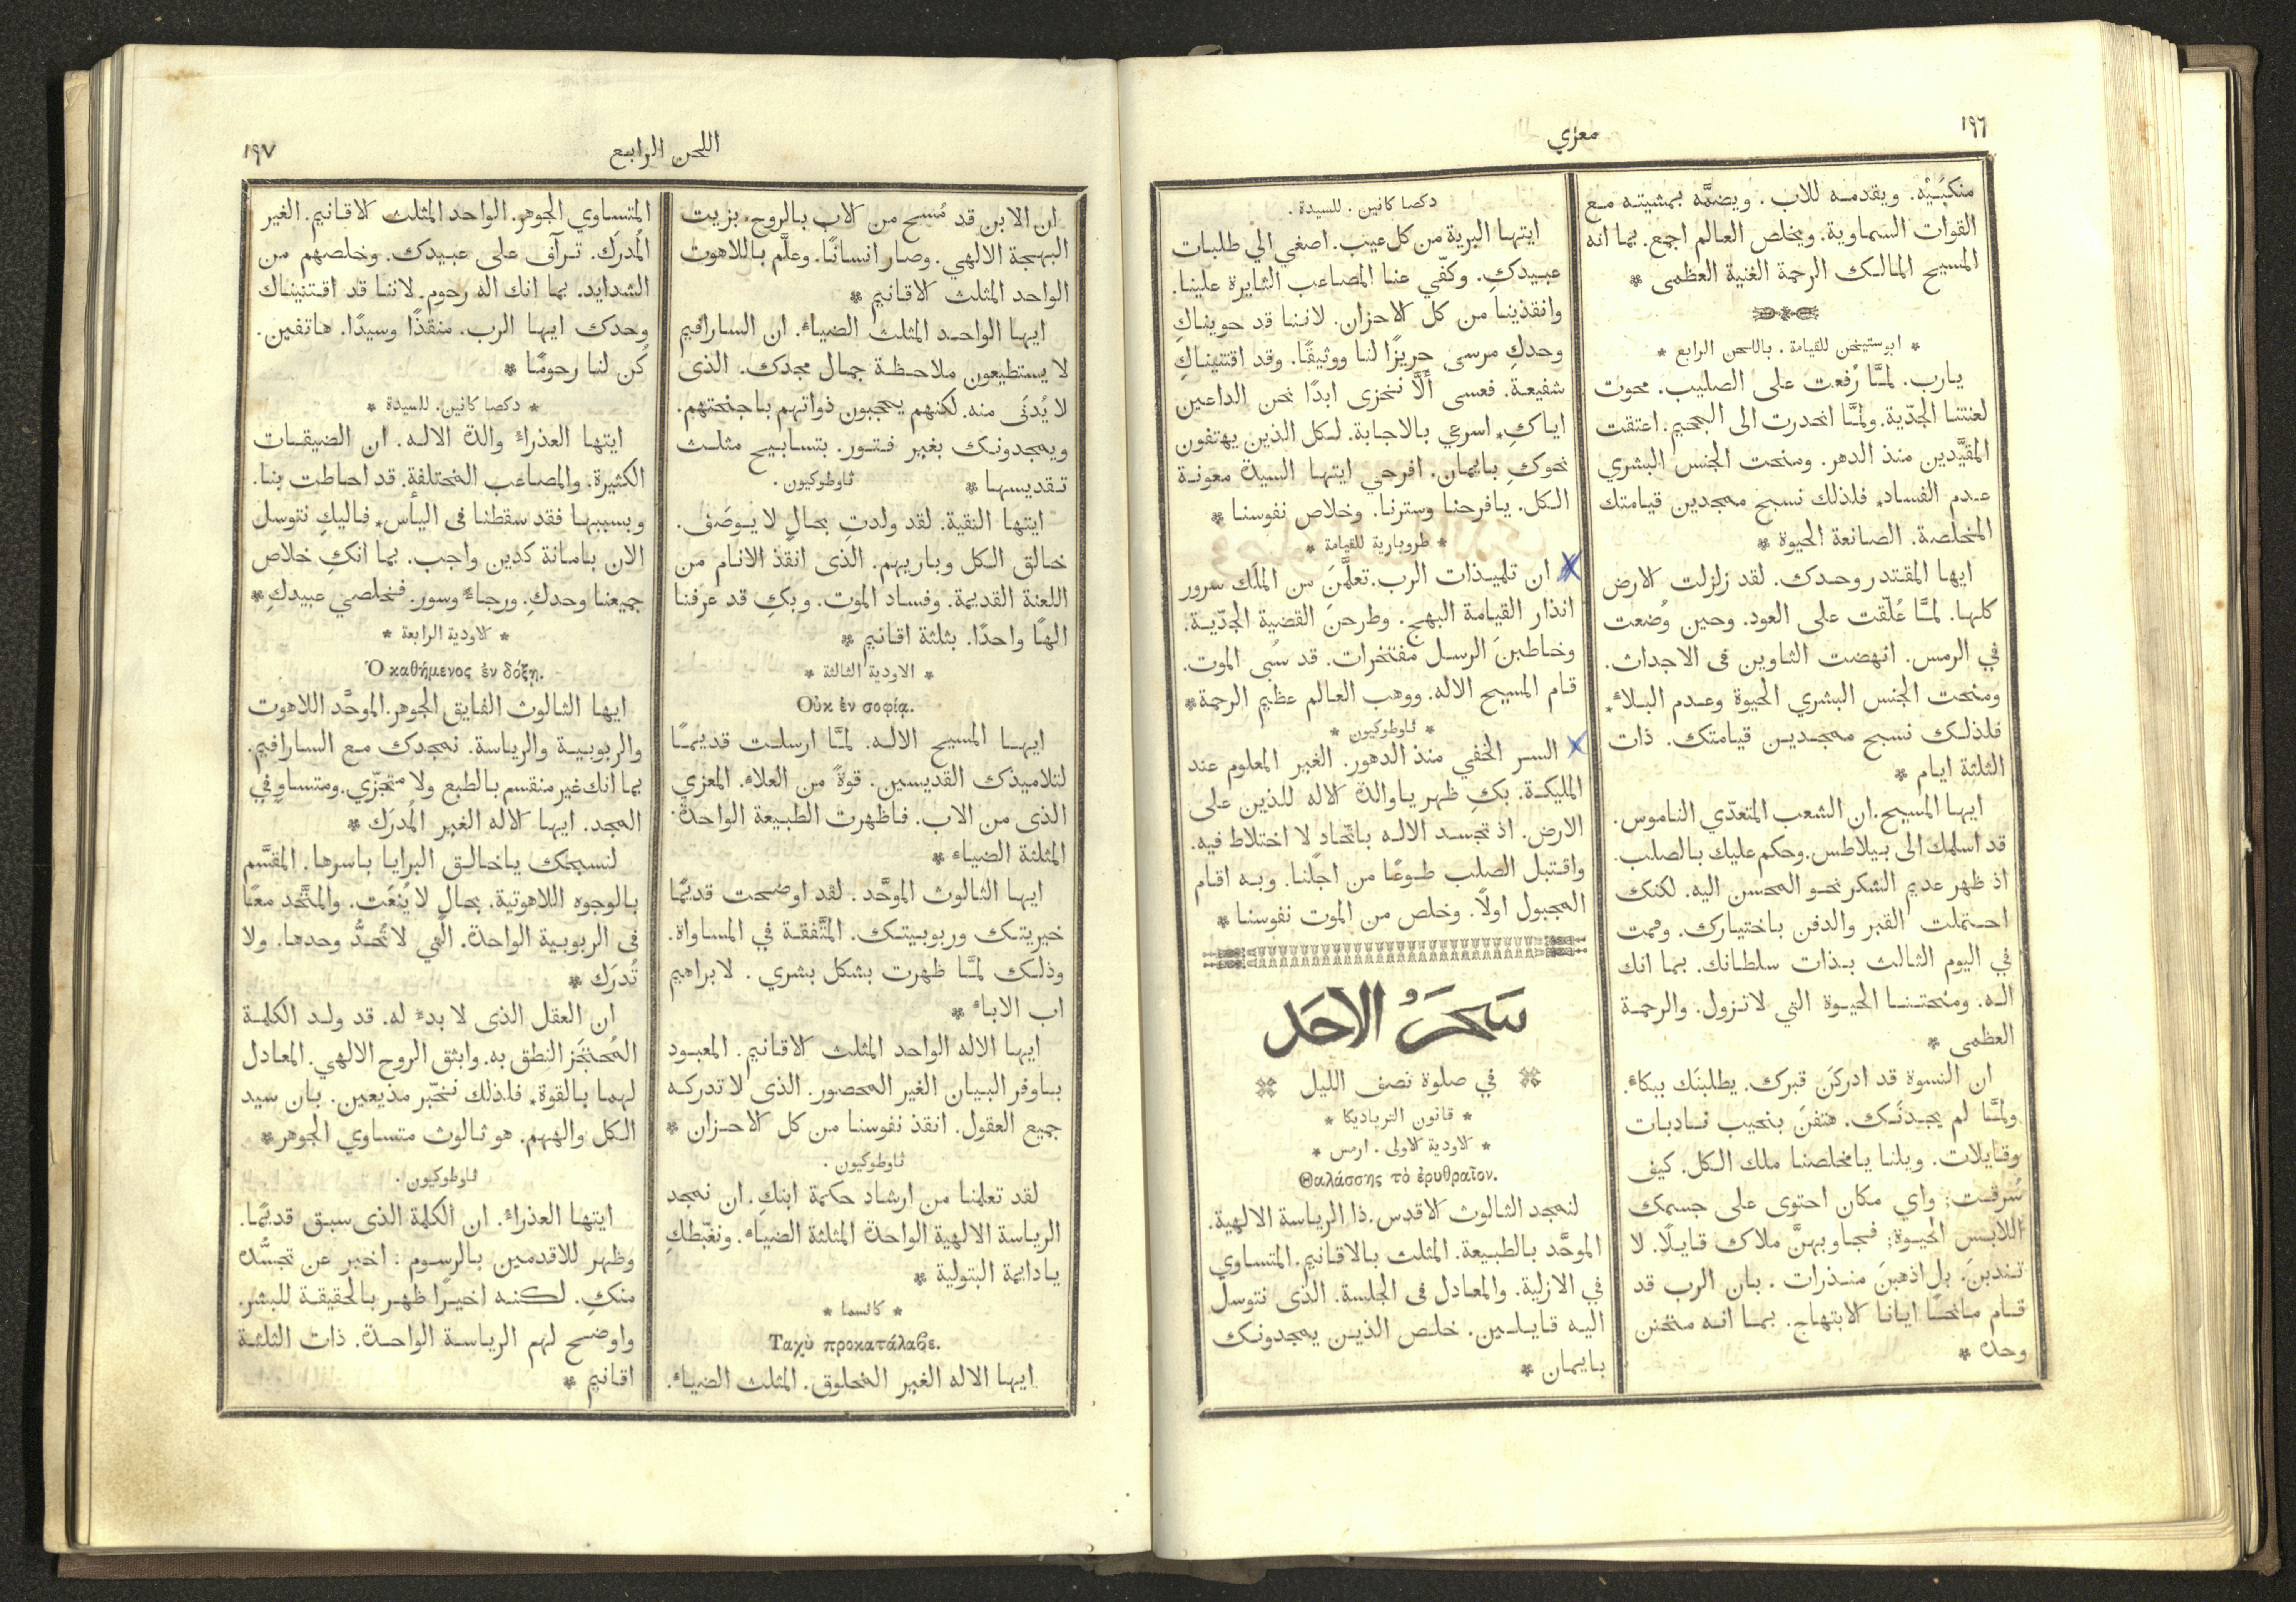 ١٩٦
معزي
منكبَيْه. ويقدمه للاب. ويضمَّه بمشيته مع
القوات السماوية. ويخلص العالم اجمع. بما انه
المسيح المالك الرحمة الغنية العظمى *
* ابوستيخن للقيامة. باللحن الرابع *
يارب. لمَّا رُفعت على الصليب. محوت
لعنتنا الجدّية. ولمَّا انحدرت الى الجحيم. اعتقت
المقيَّدين منذ الدهر. ومنحت الجنس البشري
عدم الفساد* فلذلك نسبح ممجدين قيامتك
المخلصة. الصانعة الحيوة *
ايها المقتدر وحدك. لقد زلزلت الارض
كلها. لمَّا عُلّقت على العود. وحين وُضعت
في الرمس. انهضت الثاوين فى الاجداث.
ومنحت الجنس البشري الحيوة وعدم البلاء*
فلذلك نسبح ممجدين قيامتك. ذات
الثلثة ايام *
ايها المسيح. ان الشعب المتعدّي الناموس.
قد اسلمك الى بيلاطس. وحكم عليك بالصلب.
اذ ظهر عديم الشكر نحو المحسن اليه. لكنك
احتملت القبر والدفن باختيارك. وقمت
في اليوم الثالث بذات سلطانك. بما انك
اله. ومنحتنا الحيوة التي لا تزول. والرحمة
العظمى *
ان النسوة قد ادركنَ قبرك. يطلبنَك ببكاء.
ولمَّا لم يجدنَك. هتفنَ بنحيب نادبات
وقايلات. ويلنا يامخلصنا ملك الكل. كيف
سُرقت; واي مكان احتوى على جسمك
اللابس الحيوة; فجاوبهنَّ ملاك قايلًا. لا
تندبنَ. بل اذهبنَ منذرات. بان الرب قد
قام مانحًا ايانا الابتهاج. بما انه متحنن
وحده *
دكصا كانين. للسيدة.
ايتها البرية من كل عيب. اصغي الي طلبات
عبيدكِ. وكفّي عنا المصاعب الثايرة علينا.
وانقذينا من كل الاحزان. لاننا قد حويناكِ
وحدكِ مرسى حريزًا لنا ووثيقًا. وقد اقتنيناكِ
شفيعة. فعسى ألَّا نخزى ابدًا نحن الداعين
اياكِ* اسرعي بالاجابة. لكل الذين يهتفون
نحوكِ بايمان. افرحي ايتها السيدة معونة
الكل. يافرحنا وسترنا. وخلاص نفوسنا *
* طروبارية للقيامة *
ان تلميذات الرب. تعلَّمنَ من الملَك سرور
انذار القيامة البهج. وطرحنَ القضية الجدّية.
وخاطبنَ الرسل مفتخرات. قد سُبى الموت.
قام المسيح الاله. ووهب العالم عظيم الرحمة*
* ثاوطوكيون *
السر الخفي منذ الدهور. الغير المعلوم عند
المليكة. بكِ ظهر ياوالدة الاله للذين على
الارض. اذ تجسد الاله باتّحاد لا اختلاط فيه.
واقتبل الصلب طوعًا من اجلنا. وبه اقام
المجبول اولًا. وخلص من الموت نفوسنا *
سَحَرُ الاحَد
في صلوة نصف الليل
* قانون الترياديكا *
* الاودية الاولى. ارمس *
Θαλάσσης τὸ ἐρυθραῖον.
لنمجد الثالوث الاقدس. ذا الرياسة الالهية.
الموحَّد بالطبيعة. المثلث بالاقانيم. المتساوي
في الازلية. والمعادل فى الجلسة. الذى نتوسل
اليه قايلين. خلص الذين يمجدونك
بايمان *
اللحن الرابع
١٩٧
ان الابن قد مُسح من الاب بالروح. بزيت
البهجة الالهي. وصار انسانًا. وعلَّم باللاهوت
الواحد المثلث الاقانيم *
ايها الواحد المثلث الضياء. ان السارافيم
لا يستطيعون ملاحظة جمال مجدك. الذى
لا يُدنَى منه. لكنهم يحجبون ذواتهم باجنحتهم.
ويمجدونك بغير فتور. بتسابيح مثلث
تقديسها * ثاوطوكيون.
ايتها النقية. لقد ولدتِ بحالٍ لا يوصَف.
خالق الكل وباريهم. الذى انقذ الانام من
اللعنة القديمة. وفساد الموت. وبكِ قد عرفنا
الهًا واحدًا. بثلثة اقانيم *
* الاودية الثالثة *
Οὐκ ἐν σοφίᾳ.
ايها المسيح الاله. لمَّا ارسلت قديمًا
لتلاميذك القديسين. قوةً من العلاء. المعزي
الذى من الاب. فاظهرت الطبيعة الواحدة.
المثلثة الضياء *
ايها الثالوث الموحَّد. لقد اوضحت قديمًا
خيريتك وربوبيتك. المتَّفقة في المساواة.
وذلك لمَّا ظهرت بشكل بشري. لابراهيم
اب الاباء *
ايها الاله الواحد المثلث الاقانيم. المعبود
باوفر البيان الغير المحصور. الذى لا تدركه
جميع العقول. انقذ نفوسنا من كل الاحزان *
ثاوطوكيون.
لقد تعلمنا من ارشاد حكمة ابنكِ. ان نمجد
الرياسة الالهية الواحدة المثلثة الضياء. ونغبّطكِ
يادايمة البتولية *
* كانسما *
Ταχὺ προκατάλαβε.
ايها الاله الغير المخلوق. المثلث الضياء.
المتساوي الجوهر. الواحد المثلث الاقانيم. الغير
المُدرَك. ترآف على عبيدك. وخلصهم من
الشدايد. بما انك اله رحوم. لاننا قد اقتنيناك
وحدك ايها الرب. منقذًا وسيدًا. هاتفين.
كُن لنا رحومًا *
* دكصا كانين. للسيدة *
ايتها العذراء والدة الاله. ان الضيقات
الكثيرة. والمصاعب المختلفة. قد احاطت بنا.
وبسببها فقد سقطنا فى اليأس* فاليكِ نتوسل
الان بامانة كدين واجب. بما انكِ خلاص
جميعنا وحدكِ. ورجاء وسور. فخلصي عبيدكِ*
* الاودية الرابعة *
Ὁ καθήμενος ἐν δόξῃ.
ايها الثالوث الفايق الجوهر. الموحَّد اللاهوت
والربوبية والرياسة. نمجدك مع السارافيم.
بما انك غير منقسم بالطبع ولا متجزّي. ومتساوٍ في
المجد. ايها الاله الغير المُدرَك *
لنسبحك ياخالق البرايا باسرها. المقسَّم
بالوجوه اللاهوتية. بحال لا يُنعَت. والمتَّحد معًا
فى الربوبية الواحدة. الَّتي لا تُحدُّ وحدها. ولا
تُدرَك *
ان العقل الذى لا بدء له. قد ولد الكلمة
المُحتجَز النطق به. وابثق الروح الالهي. المعادل
لهما بالقوة* فلذلك نخبّر مذيعين. بان سيد
الكل والههم. هو ثالوث متساوي الجوهر*
ثاوطوكيون.
ايتها العذراء. ان الكلمة الذى سبق قديمًا.
وظهر للاقدمين بالرسوم: اخبر عن تجسُّده
منكِ. لكنه اخيرًا ظهر بالحقيقة للبشر.
واوضح لهم الرياسة الواحدة. ذات الثلثة
اقانيم *